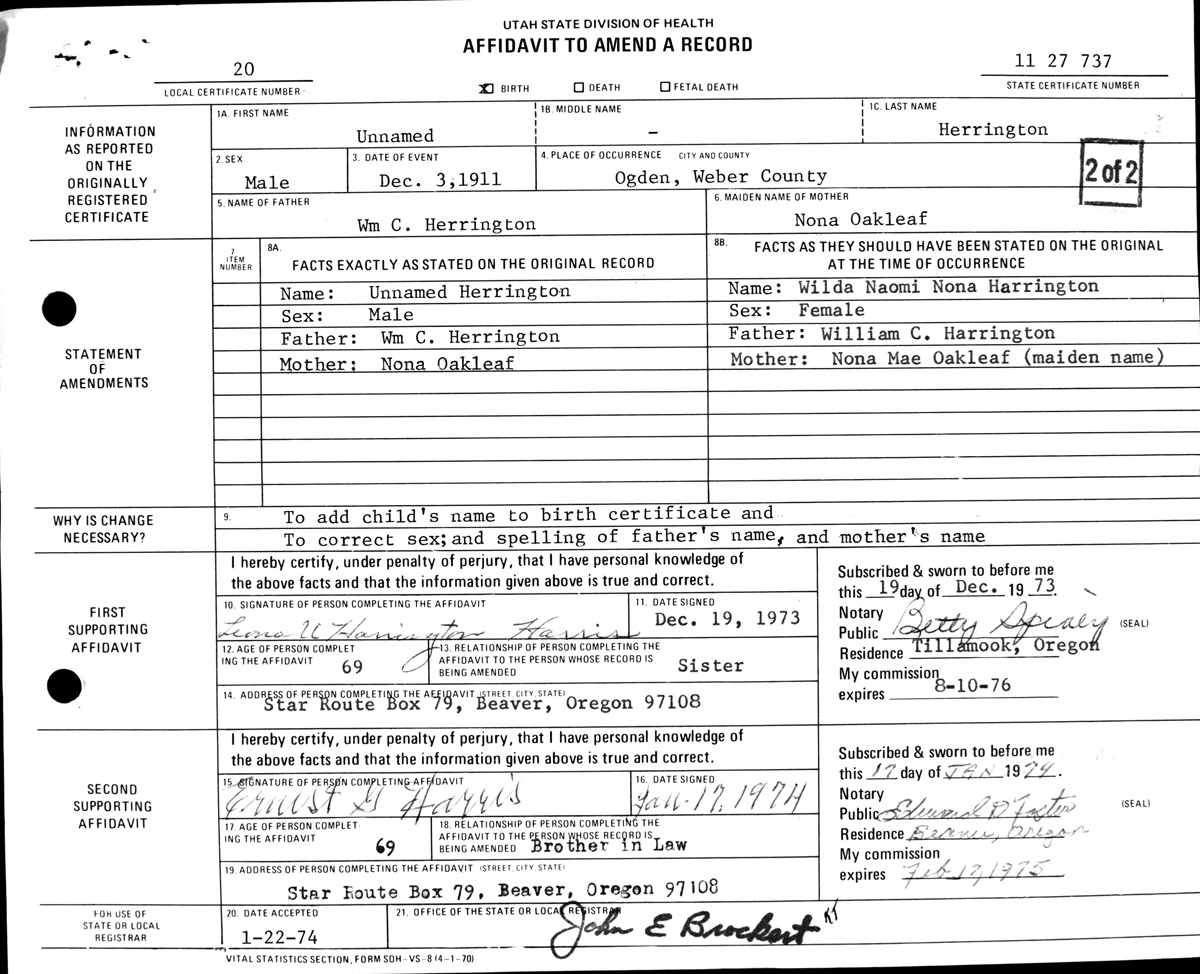 UTAH STATE DIVISION OF HEALTH
AFFIDAVIT TO AMEND A RECORD
20
LOCAL CERTIFICATE NUMBER
X BIRTH DEATH FETAL DEATH
11 27 737
STATE CERTIFICATE NUMBER
INFORMATION
AS REPORTED
ON THE
ORIGINALLY
REGISTERED
CERTIFICATE
1A. FIRST NAME 1B. MIDDLE NAME 1C. LAST NAME
Unnamed – Herrington
2. SEX 3. DATE OF EVENT 4. PLACE OF OCCURRENCE CITY AND COUNTY
Male Dec. 3,1911 Ogden, Weber County
2 of 2
5. NAME OF FATHER 6. MAIDEN NAME OF MOTHER
Wm C. Herrington Nona Oakleaf
STATEMENT
OF
AMENDMENTS
7
ITEM
NUMBER
8A.
FACTS EXACTLY AS STATED ON THE ORIGINAL RECORD
8B. FACTS AS THEY SHOULD HAVE BEEN STATED ON THE ORIGINAL
AT THE TIME OF OCCURRENCE
Name: Unnamed Herrington Name: Wilda Naomi Nona Harrington
Sex: Male Sex: Female
Father: Wm C. Herrington Father: William C. Harrington
Mother: Nona Oakleaf Mother: Nona Mae Oakleaf (maiden name)
WHY IS CHANGE
NECESSARY?
9. To add child's name to birth certificate and
To correct sex; and spelling of father's name, and mother's name
FIRST
SUPPORTING
AFFIDAVIT
I hereby certify, under penalty of perjury, that I have personal knowledge of
the above facts and that the information given above is true and correct.
10. SIGNATURE OF PERSON COMPLETING THE AFFIDAVIT 11. DATE SIGNED
Leona U Harrington Harris Dec. 19, 1973
12. AGE OF PERSON COMPLET
ING THE AFFIDAVIT 69
13. RELATIONSHIP OF PERSON COMPLETING THE
AFFIDAVIT TO THE PERSON WHOSE RECORD IS
BEING AMENDED Sister
14. ADDRESS OF PERSON COMPLETING THE AFFIDAVIT (STREET, CITY, STATE)
Star Route Box 79, Beaver, Oregon 97108
Subscribed & sworn to before me
this 19 day of Dec. 19 73.
Notary
Public Betty (SEAL)
Residence Tillamook, Oregon
My commission
expires 8-10-76
SECOND
SUPPORTING
AFFIDAVIT
I hereby certify, under penalty of perjury, that I have personal knowledge of
the above facts and that the information given above is true and correct.
15. SIGNATURE OF PERSON COMPLETING AFFIDAVIT 16. DATE SIGNED
Ernest G Harris Jan. 17, 1974
17. AGE OF PERSON COMPLET
ING THE AFFIDAVIT 69
18. RELATIONSHIP OF PERSON COMPLETING THE
AFFIDAVIT TO THE PERSON WHOSE RECORD IS
BEING AMENDED Brother in Law
19. ADDRESS OF PERSON COMPLETING THE AFFIDAVIT (STREET, CITY, STATE)
Star Route Box 79, Beaver, Oregon 97108
Subscribed & sworn to before me
this 17 day of JAN 1974.
Notary
Public Edward D Foster (SEAL)
Residence Beaver, Oregon
My commission
expires Feb 17, 1975
FOR USE OF
STATE OR LOCAL
REGISTRAR
20. DATE ACCEPTED 21. OFFICE OF THE STATE OR LOCAL REGISTRAR
1-22-74 John E Brockert KT
VITAL STATISTICS SECTION, FORM SDH-VS-8 (4-1-70)